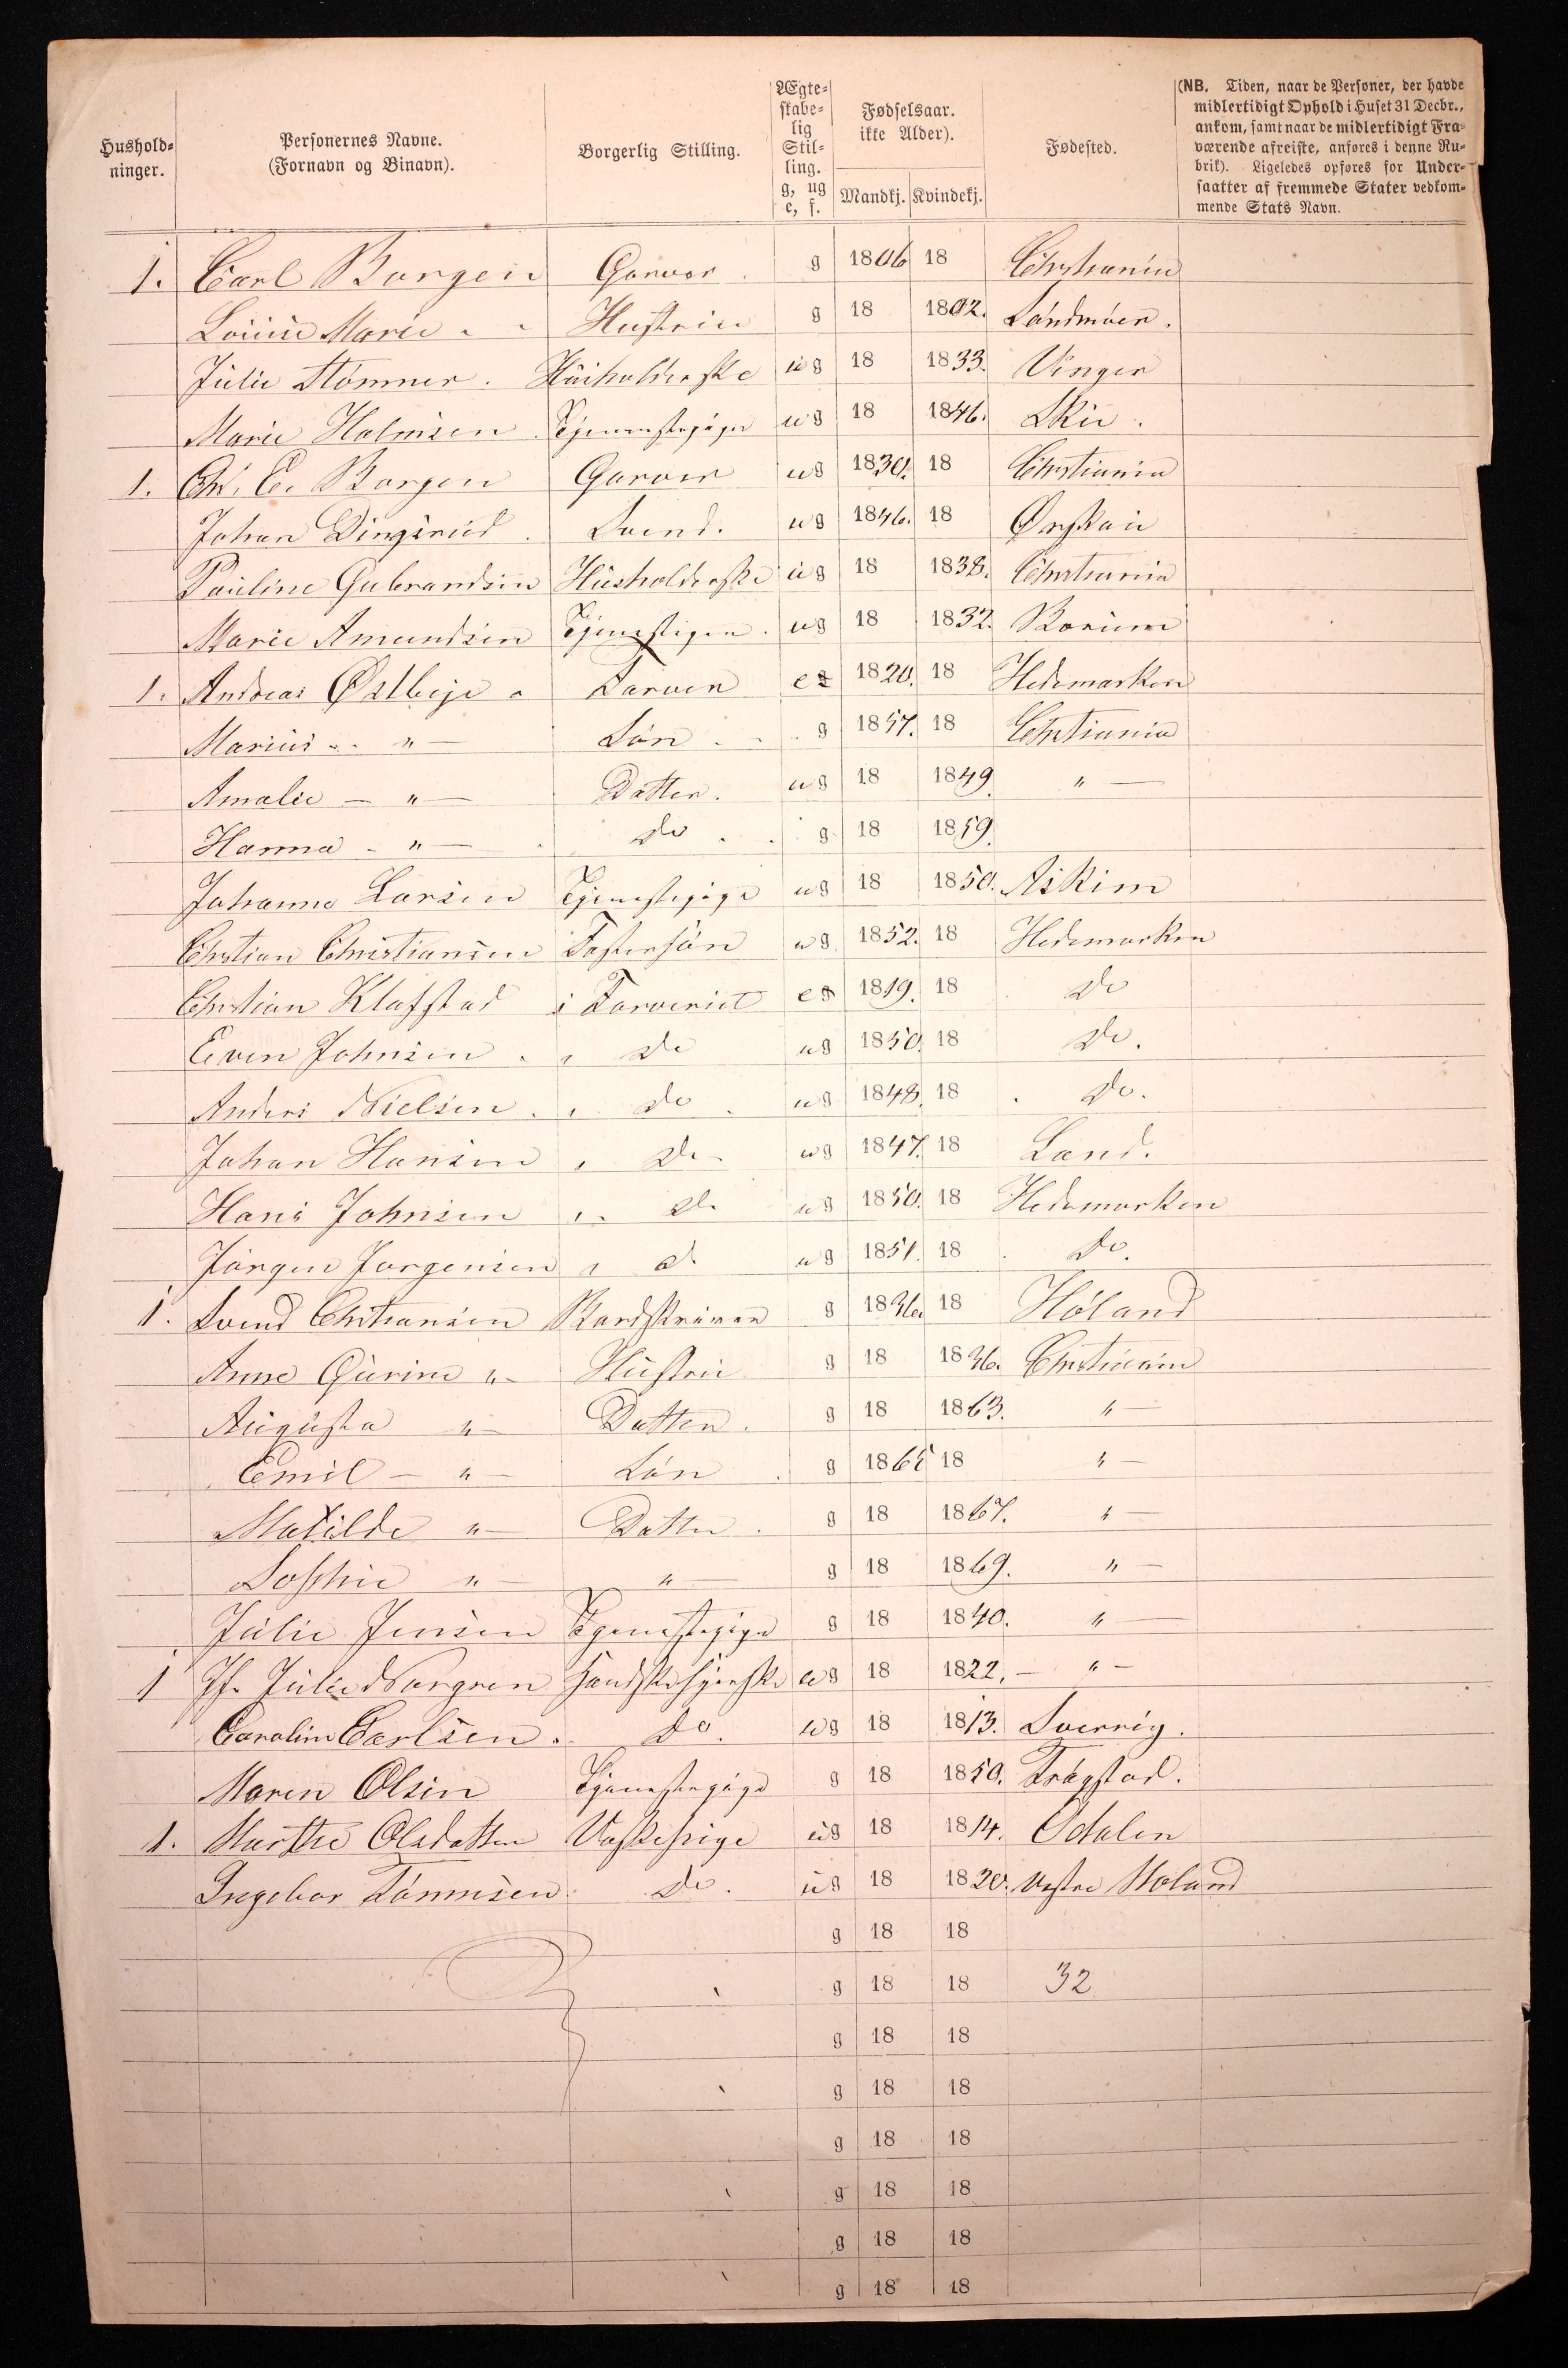 Hushold-
ninger.
Personernes Navne.
(Fornavn og Binavn).
Borgerlig Stilling.
Ægte-
skabe-
lig
Stil-
ling.
g, ug
e, f.
Fødselsaar.
ikke Alder).
Mandkj. Kvindekj.
Fødested.
(NB. Tiden, naar de Personer, der havde
midlertidigt Ophold i Huset 31 Decbr.,
ankom, samt naar de midlertidigt Fra-
værende afreiste, anføres i denne Ru-
brik). Ligeledes opføres for Under-
saatter af fremmede Stater vedkom-
mende Stats Navn.
1. Carl Borgen Garver g 1806 18 Christiania
Louise Marie " Hustru g 18 1802. Søndmøer.
Julie Stømner. Huiholderske ug 18 1833. Vinger
Marie Halmsen Tjenestepige ug 18 1846. Skie.
1. Chr. E. Borgen Garver ug 1830. 18 Christiania
Johan Dingsrud Svend. ug 1846. 18 Ørskau
Pauline Gubrandsen Husholderske ug 18 1838. Christiania
Marie Amundsen Tjenestepige ug 18 1832. Borum
1. Andreas Østbye Farver e 1820. 18 Hedemarken
Marius " — Søn g 1857. 18 Christiania
Amalie — " — Datter. ug 18 1849. " —
Hanna - " — do g 18 1859.
Johanne Larsen Tjenestepige ug 18 1850. Askim
Christian Christiansen Fostersøn ug 1852. 18 Hedemarken
Christian Klafstad i Farveriet e 1819. 18 do
Even Johnsen " do ug 1850. 18 do.
Anders Nielsen. " do ug 1848. 18 do.
Johan Hansen " do ug 1847. 18 Land.
Hans Johnsen " do ug 1850. 18 Hedemarken
Jørgen Jørgensen " do ug 1851. 18 do.
1. Svend Christiansen Bordskriver g 1836. 18 Høland
Anne Gurine " Hustru g 18 1836. Christiania
Augusta " — Datter. g 18 1863. " —
Emil — " — Søn g 1865 18 " —
Matilde " — Datter g 18 1867. " —
Sophie " — " — g 18 1869. " —
Julie Jensen Tjenestepige g 18 1840. " —
1 Jf. Julie Norgren Handskesyerske ug 18 1822. — " —
Caroline Carlsen. do. ug 18 1813. Sverrig.
Maren Olsen Tjenestepige g 18 1850. Trøgstad.
1. Marthe Olsdatter Vaskepige ug 18 1814. Odalen
Ingebor Tønnesen do. ug 18 1820. Vestre Holand
g 18 18
g 18 18 32
g 18 18
g 18 18
g 18 18
g 18 18
g 18 18
g 18 18